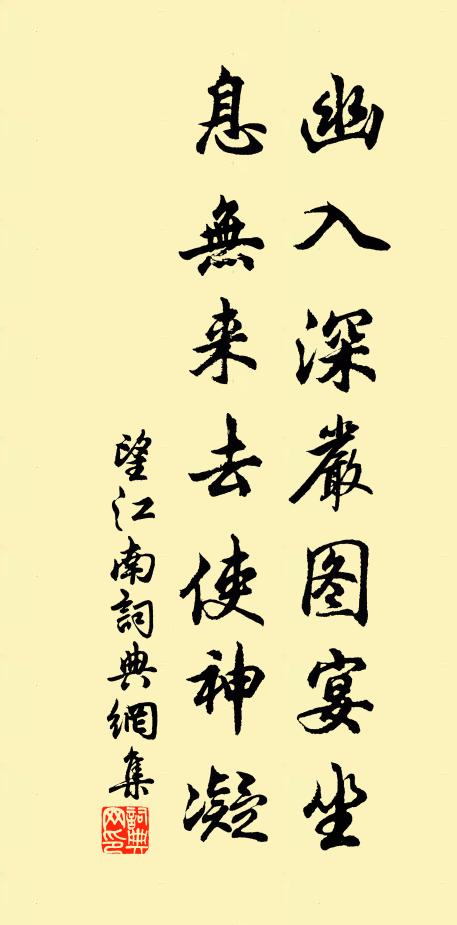 幽入深嚴图宴坐
息無来去使神凝
望江南詞典網集
詞典网印